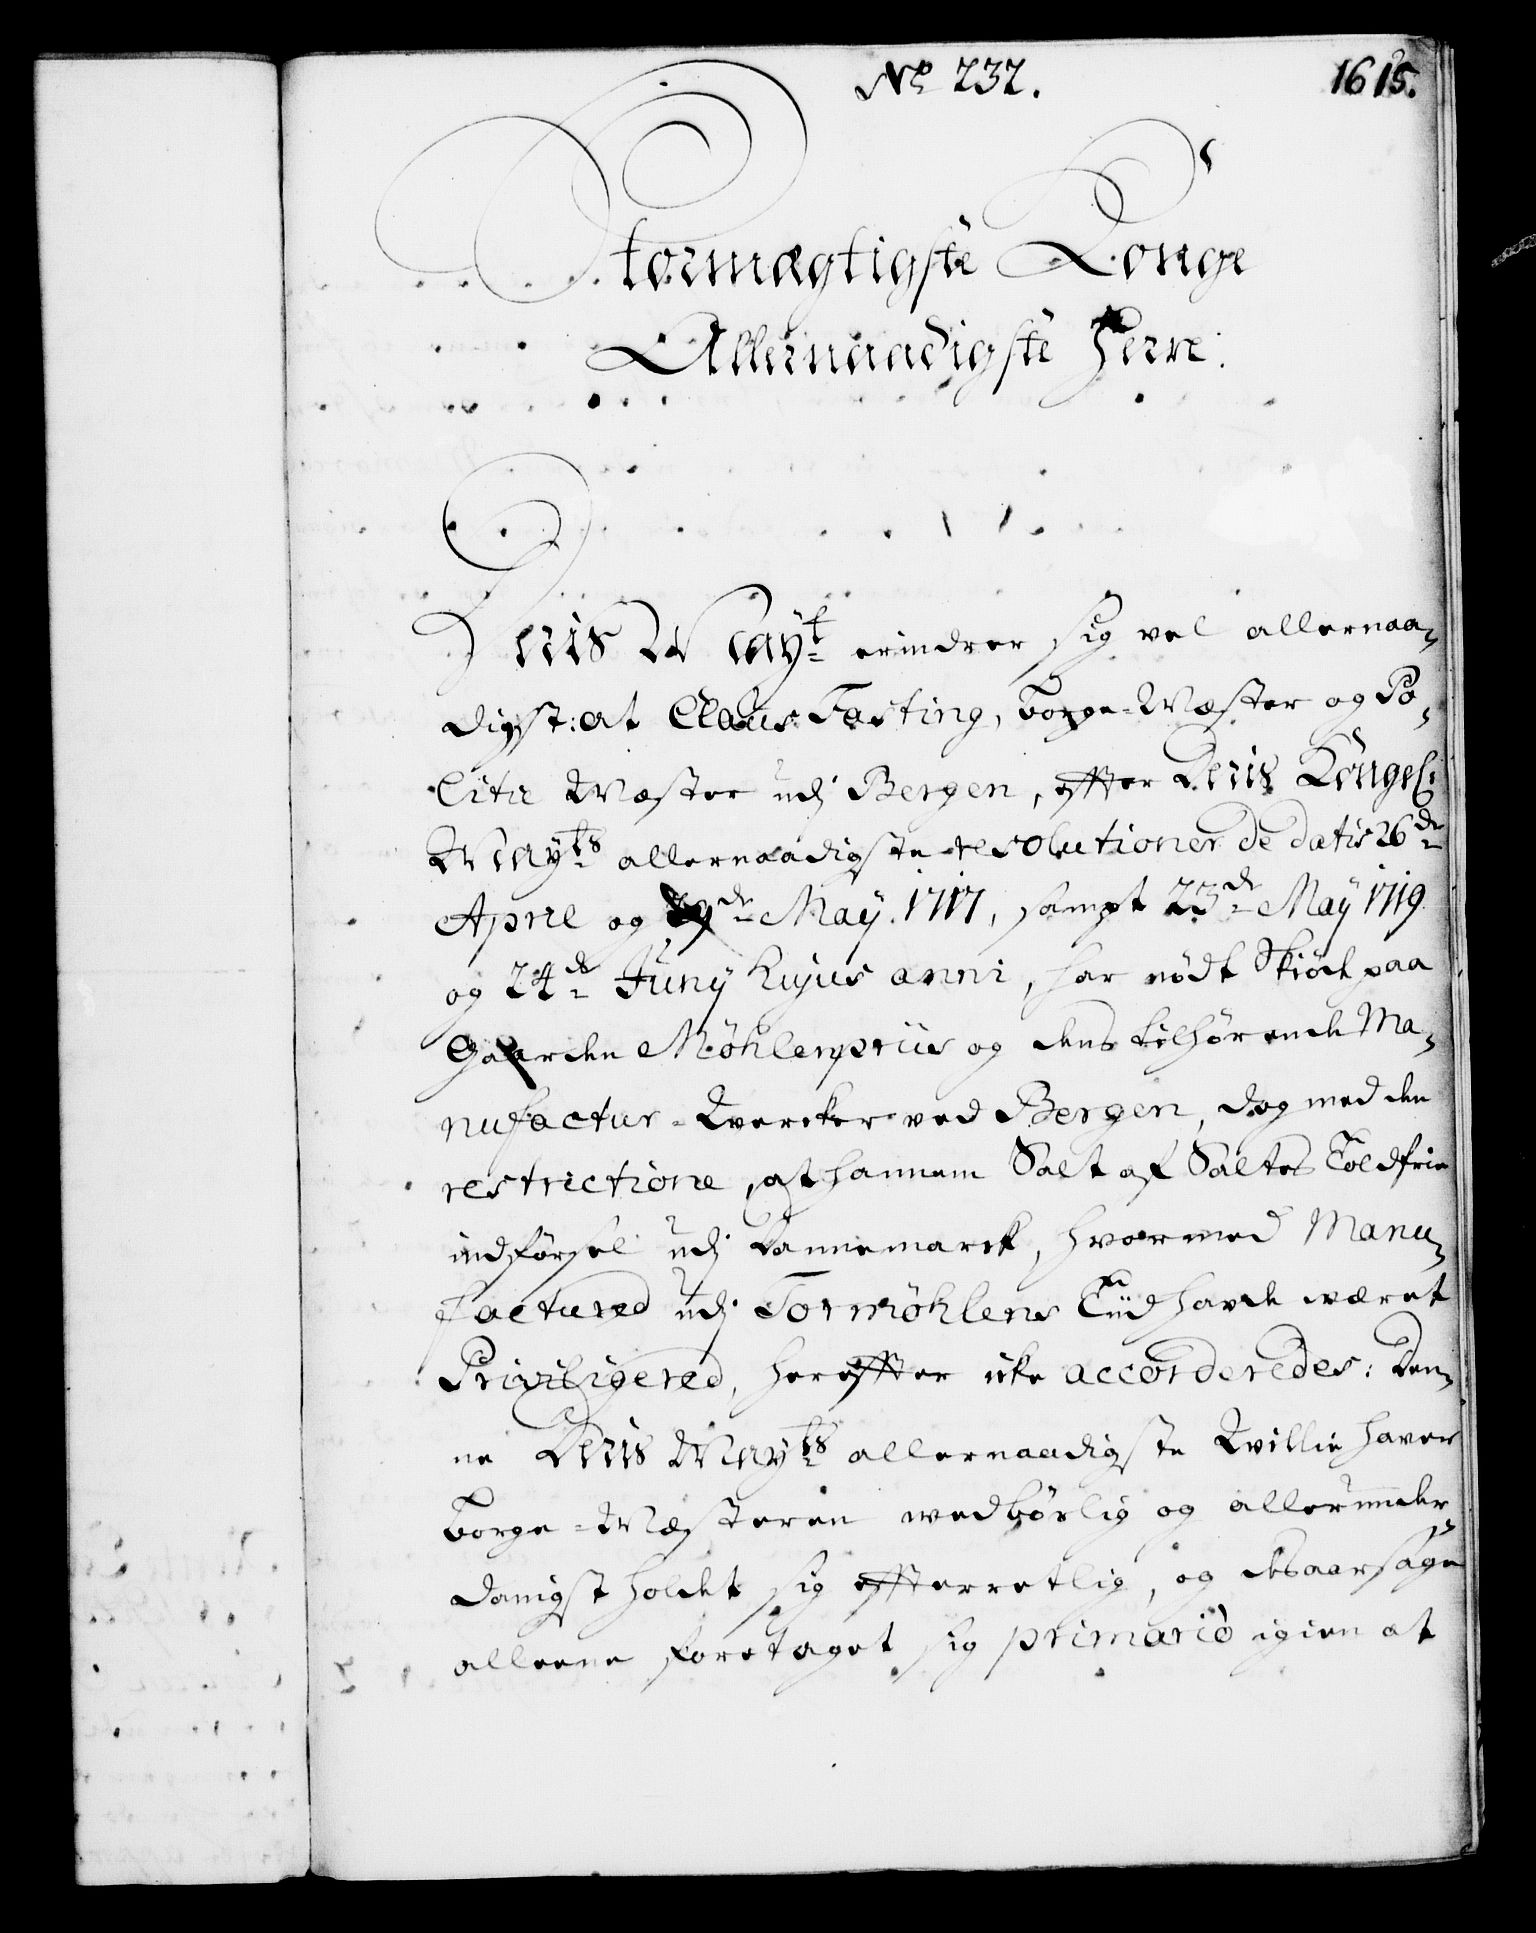 No 232.
1615.
Stormægtigste Konge
Allernaadigste Herre.
Deris Mayt erindrer sig vel allernaa-
digst: at Claus Fasting, Borge-Mæster og Po-
litie Mæster udj Bergen, effter Deris Kongel:
Mayts allernaadigste resolutioner de datis 26de
April og 29de May. 1717, sampt 23de May 1719
og 24de Juny hujus anni, har nødt Skiøde paa
Gaarden Möhlenpriis og dens tilhørende Ma-
nufactur-Værcker ved Bergen, dog med den
restrictione, at hannem Salt af Saltes Toldfrie
indførsel udj Dannemarck, hvormed Manu-
factured udj Tormøhlens Tiid havde været
Priviligered, hereffter icke accorderedes: Den-
ne Deris Mayts allernaadigste Villie haver
Borge-Mæsteren vedbørlig og allerunder
danigst holdet sig effterretlig, og desaarsage
alleene foretaget sig primario igien at